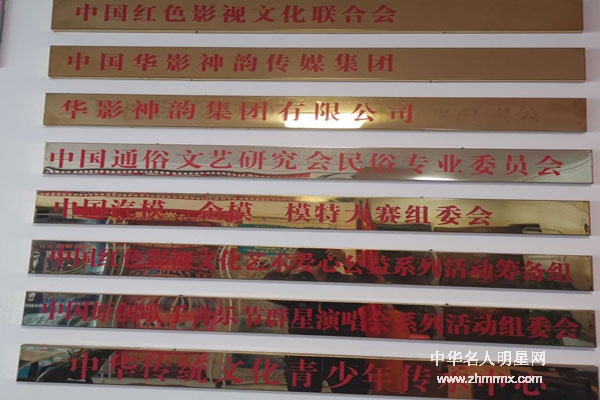 中国红色影视文化联合会
中国华影神韵传媒集团
华影神韵集团有限公司
中国通俗文艺研究会民俗专业委员会
中国汽模、车模、模特大赛组委会
中国红色影视文化艺术爱心公益系列活动筹备组
中国原创歌手音乐节群星演唱会系列活动组委会
中华传统文化青少年传 中心
中华名人明星网
www.zhmmmx.com